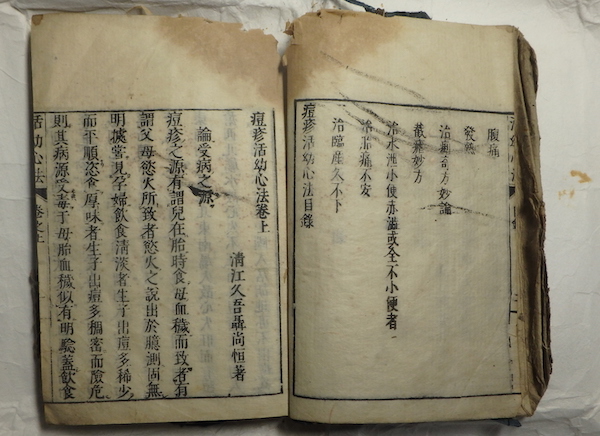 活幼心法
腹痛
發熱
治痢奇方妙論
藥妙方
治水泄小便赤澁或全不小便者
治胎痛不安
治臨產久不下
痘疹活幼心法目錄
痘疹活幼心法卷上
清江久吾聶尚恒著
論受病之源
痘疹之源有謂兒在胎時食母血穢而致者有
謂父母慾火所致者慾火之說出於臆測固無
明據嘗見孕婦飲食清淡者生子出痘多稀少
而平順恣食厚味者生子出痘多稠密而險危
則其病源受毒于母胎血穢似有明驗蓋飲食
活幼心法 卷之上